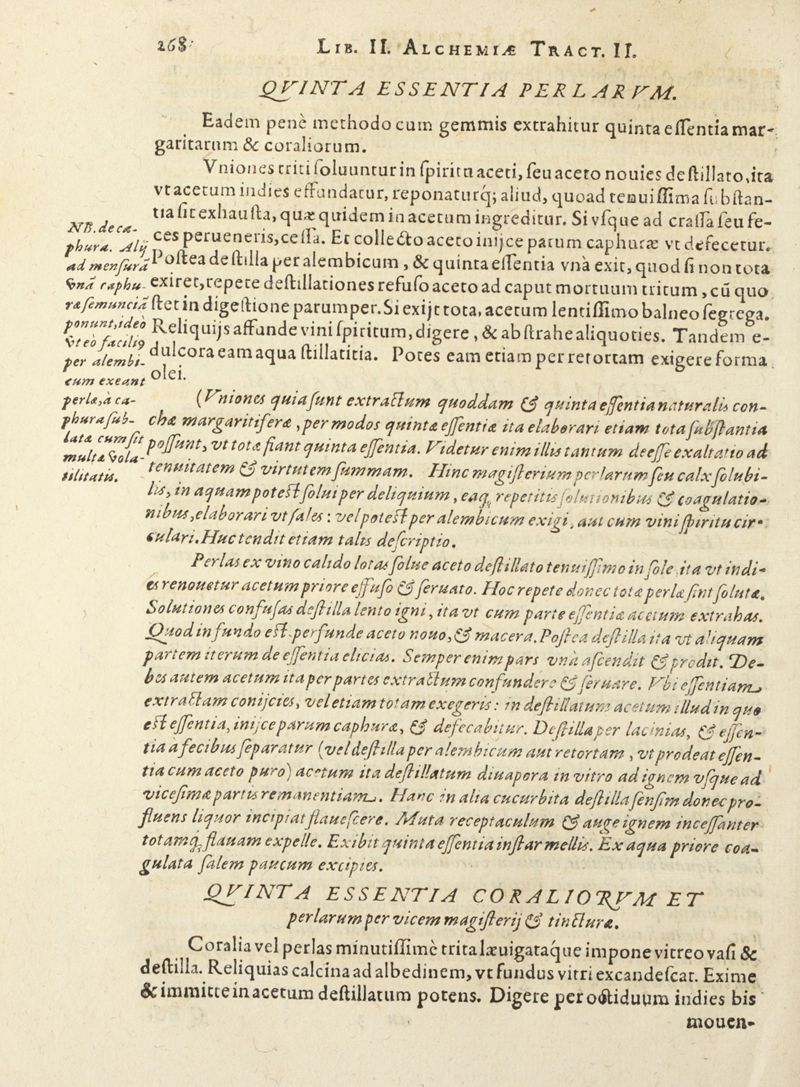 268
LIB. II. ALCHEMIÆ TRACT. II.
QVINTA ESSENTIA PERLARVM.
Eadem penè methodo cum gemmis extrahitur quinta essentia mar-
garitarum & coraliorum.
Vniones triti soluuntur in spiritu aceti, seu aceto nouies destillato, ita
vt acetum indies effundatur, reponaturq; aliud, quoad tenuissima substan-
tia sit exhausta, quæ quidem in acetum ingreditur. Si vsque ad crassa seu fe-
ces perueneris, cessa. Et collecto aceto inijce parum caphuræ vt defecetur.
Postea destilla per alembicum, & quinta essentia vnà exit, quod si non tota
exiret, repete destillationes refuso aceto ad caput mortuum tritum, cū quo
stet in digestione parumper. Si exijt tota, acetum lentissimo balneo segrega.
Reliquijs affunde vini spiritum, digere, & abstrahe aliquoties. Tandem e-
dulcora eam aqua stillatitia. Potes eam etiam per retortam exigere forma
olei.
NB. de ca-
phura. Alij
ad mensurā
vnā caphu-
ræ semunciā
ponunt, ideo
vt eo facilius
per alembi-
cum exeant
perlæ, à ca-
phura sub-
lata cum sit
multæ vola-
tilitatis.
(Vniones quia sunt extractum quoddam & quinta essentia naturalis con-
chæ margaritiferæ, per modos quintæ essentiæ ita elaborari etiam tota substantia
possunt, vt totæ fiant quinta essentia. Videtur enim illis tantum deesse exaltatio ad
tenuitatem & virtutem summam. Hinc magisterium perlarum seu calx solubi-
lis, in aquam potest solui per deliquium, eaq; repetitis solutionibus & coagulatio-
nibus, elaborari vt sales: vel potest per alembicum exigi, aut cum vini spiritu cir-
culari. Huc tendit etiam talis descriptio.
Perlas ex vino calido lotas solue aceto destillato tenuissimo in sole ita vt indi-
es renouetur acetum priore effuso & seruato. Hoc repete donec totæ perlæ sint solutæ.
Solutiones confusas destilla lento igni, ita vt cum parte essentiæ acetum extrahas.
Quod in fundo est perfunde aceto nouo, & macera. Postea destilla ita vt aliquam
partem iterum de essentia elicias. Semper enim pars vnà ascendit & prodit. De-
bes autem acetum ita per partes extractum confundere & seruare. Vbi essentiam
extractam conijcies, vel etiam totam exegeris: in destillatum acetum illud in quo
est essentia, inijce parum caphuræ, & defecabitur. Destilla per lacinias, & essen-
tia a fecibus separatur (vel destilla per alembicum aut retortam, vt prodeat essen-
tia cum aceto puro) acetum ita destillatum diuapora in vitro ad ignem vsque ad
vicesimæ partis remanentiam. Hanc in alta cucurbita destilla sensim donec pro-
fluens liquor incipiat flauescere. Muta receptaculum & auge ignem incessanter
totamq; flauam expelle. Exibit quinta essentia instar mellis. Ex aqua priore coa-
gulata salem paucum excipies.
QVINTA ESSENTIA CORALIORVM ET
perlarum per vicem magisterij & tincturæ.
Coralia vel perlas minutissimè trita læuigataque impone vitreo vasi &
destilla. Reliquias calcina ad albedinem, vt fundus vitri excandescat. Exime
& immitte in acetum destillatum potens. Digere per octiduum indies bis
mouen-